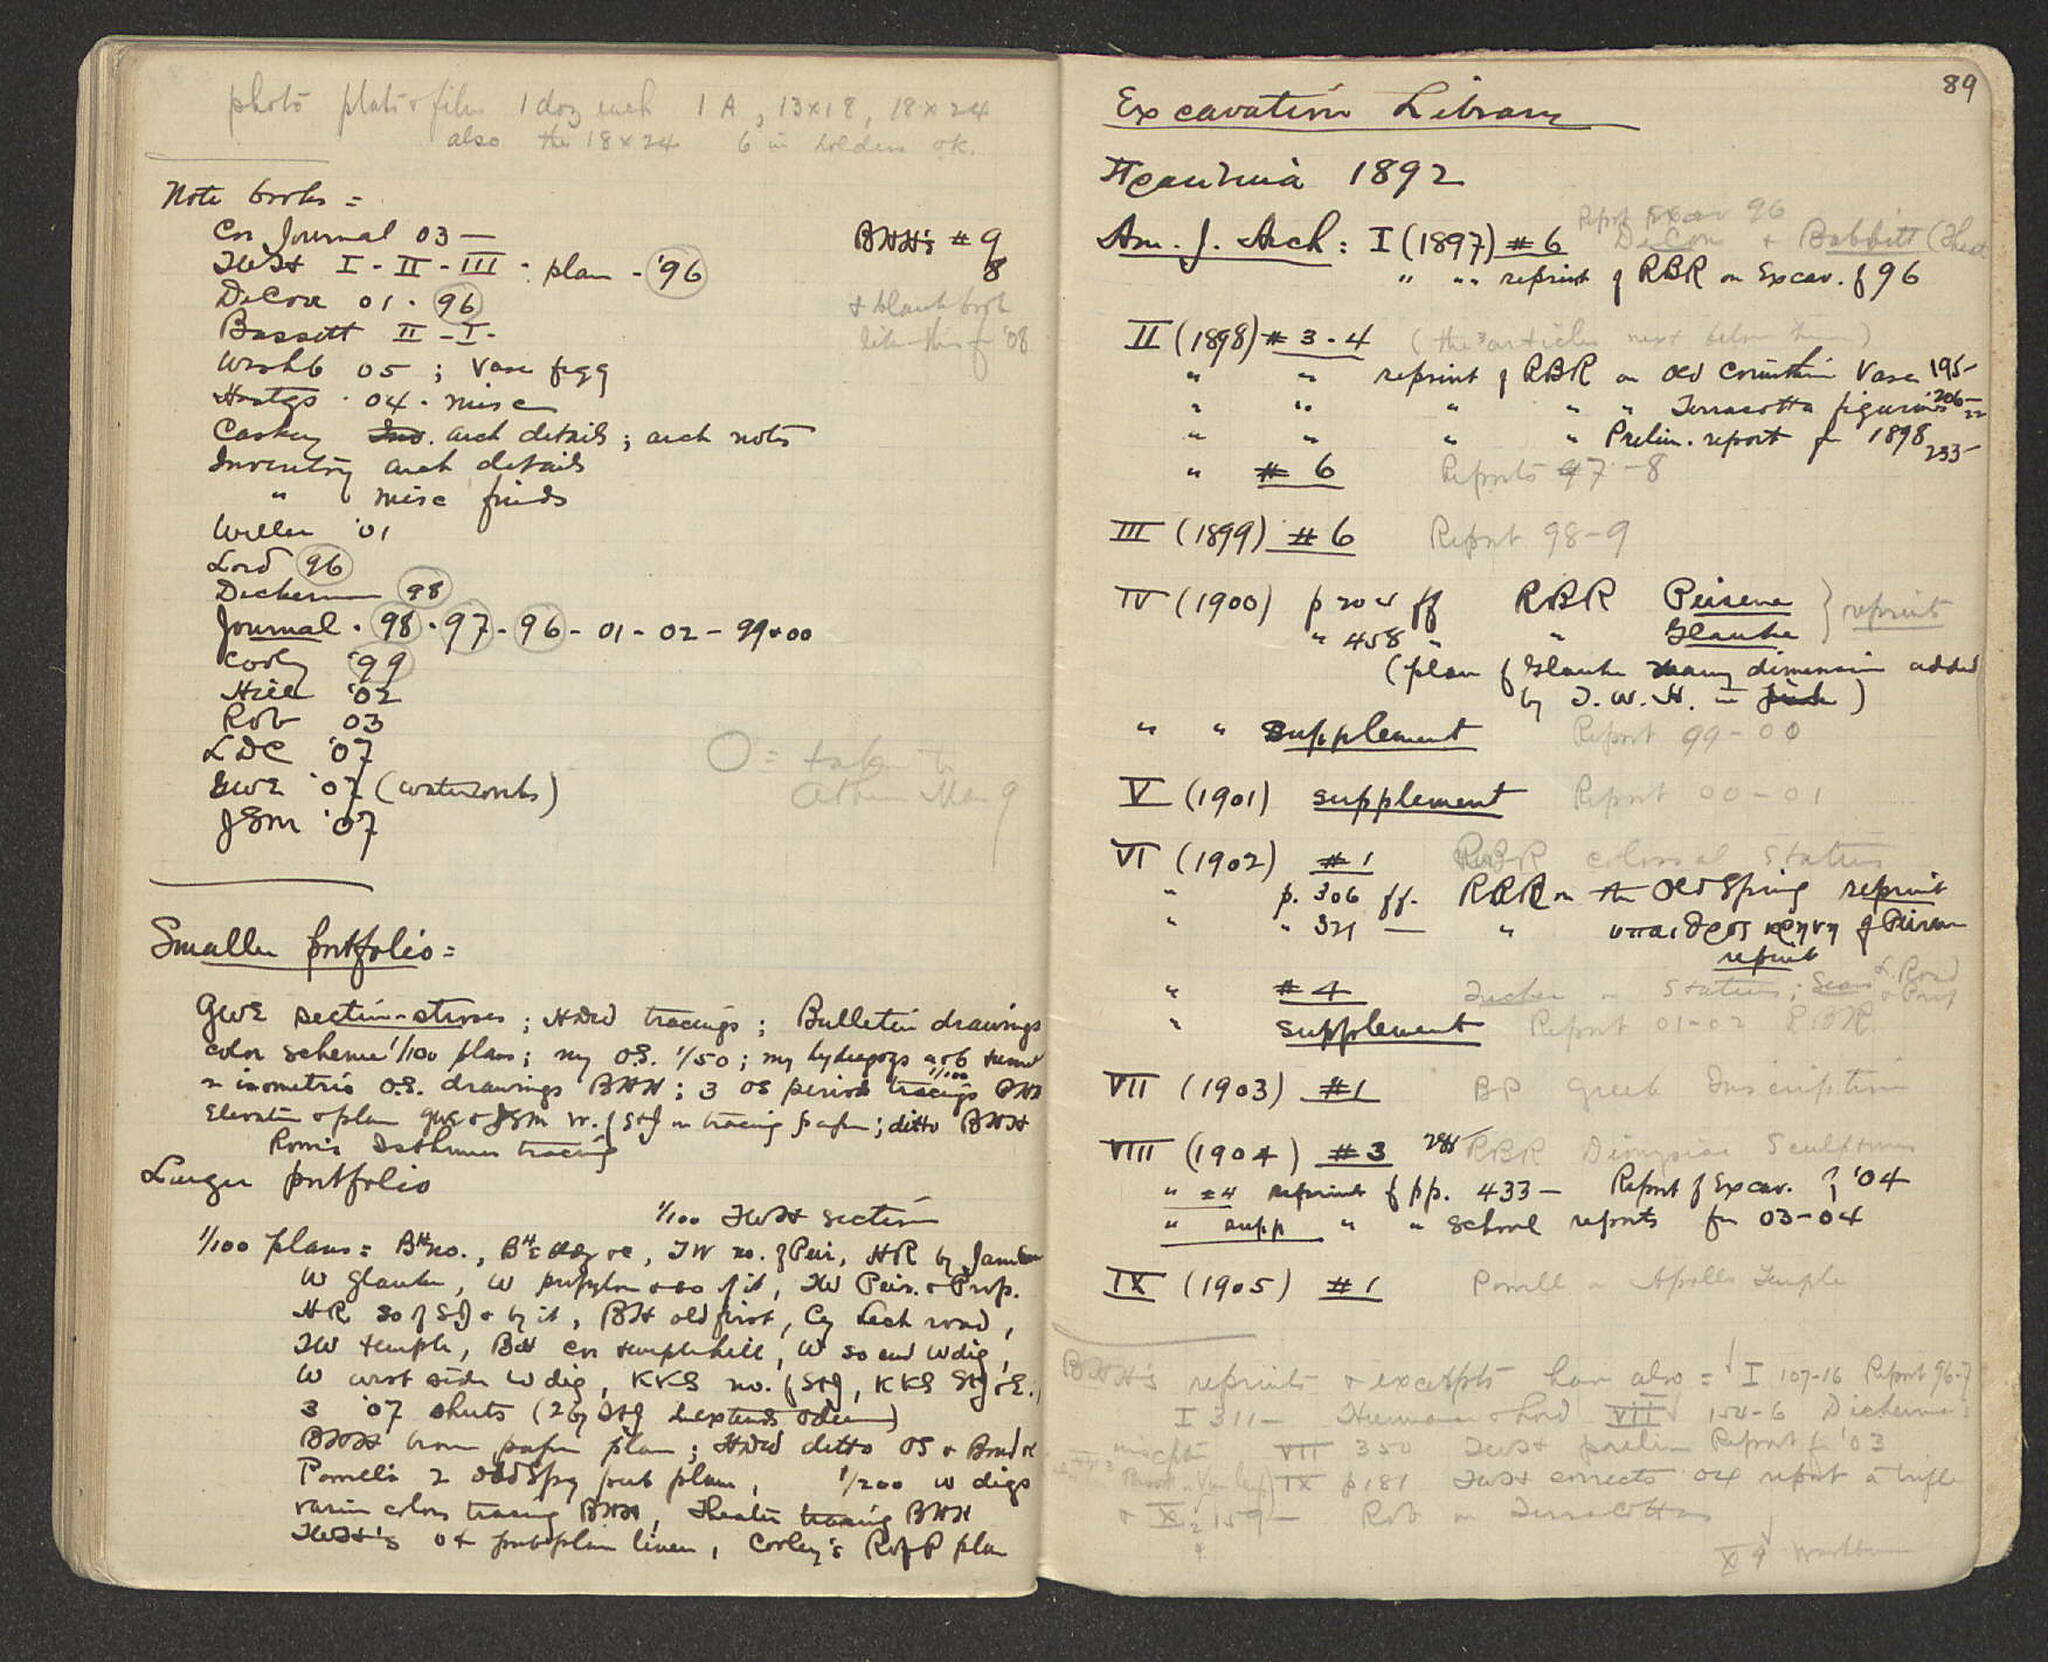 photo plates & film 1 doz each 1 A, 13x18, 18x24
also the 18x24 6 in holders ok.
Note books =
Cor Journal 03 —
TWH I - II - III : plan - '96
DeCou 01 · 96
Bassett II - I -
Washb 05 ; Vase frgg
Hastgs · 04 · misc
Caskey Inv. arch details ; arch notes
Inventory arch details
" misc finds
Weller '01
Lord 96
Dickerman 98
Journal · 98 · 97 - 96 - 01 - 02 - 99+00
Cooley '99
Hill '02
Rob 03
LDC '07
GWE '07 (waterworks)
JSM '07
BHH's # 9
8
+ blank book
like this for '08
O = taken to
Athens Mar 9
Smaller portfolio =
GWE section-stroses ; HDW tracings ; Bulletin drawings
color scheme 1/100 plans ; my O.S. 1/50 ; my
2 isometric O.S. drawings BHH ; 3 OS period 1/100 tracings BHH
Elevation & plan GWE & JSM W. of StJ on tracing paper ; ditto BHH
Rom's Isthmus tracing
Larger portfolio
1/100 TWH section
1/100 plans = BH no., TW no. of Peir, HR by
W Glauke, W propylon & so of it, TW Peir. & Prop.
HR so of StJ & by it, BH old first, Cy Lech road,
TW temple, BH Cor templehill, W so end W dig,
W west side W dig, KKS no. of StJ, KKS StJ & E.,
3 '07 shuts (2 by StJ )
BHH brown paper plan ; HDW ditto OS & Road &
Powell's 2 OldSpg plan, 1/200 W digs
various colors tracing BHH, Theatre tracing BHH
TWH's 04 plan linen, Cooley's RofP plan
89
Excavation Library
Πρακτικά 1892
Am. J. Arch : I (1897) # 6 Report Excav 96
DeCou & Babbitt (Theat
" " reprint of RBR on Excav. of 96
II (1898) # 3 - 4 (the 3 articles next below them)
" " reprint of RBR on Old Corinthian Vases 195-
" " " " " Terracotta figurines 206-22
" " " " Prelim. report for 1898 233-
" # 6 Reports 97-8
III (1899) # 6 Report 98-9
IV (1900) p 204 ff RBR Peirene } reprints
" 458 " " Glauke
(plan of Glauke many dimensions added
by T. W. H. in )
" " Supplement Report 99-00
V (1901) supplement Report 00-01
VI (1902) # 1 RBR colossal statues
" p. 306 ff. RBR on the Old Spring reprint
" " 321 — " υπαιθρος κρηνη of Peirene
reprint
" # 4 Tucker on Statues ;
" supplement Report 01-02 RBR
VII (1903) #1 BP Greek Inscription
VIII (1904) # 3 288 RBR Dionysiac Sculptures
" #4 reprint of pp. 433 — Report of Excav. of '04
" supp " " School reports for 03-04
IX (1905) # 1 Powell on Apollo Temple
BHH's reprints & excerpts have also = I 107-16 Report 96-7
I 311 — Hermann & Lord VII 154-6 Dickerman :
VII 350 TWH prelim Report for '03
IX p 181 TWH corrects 04 report a trifle
& X2 159 — Rob on Terracottas
X 9 Washburn